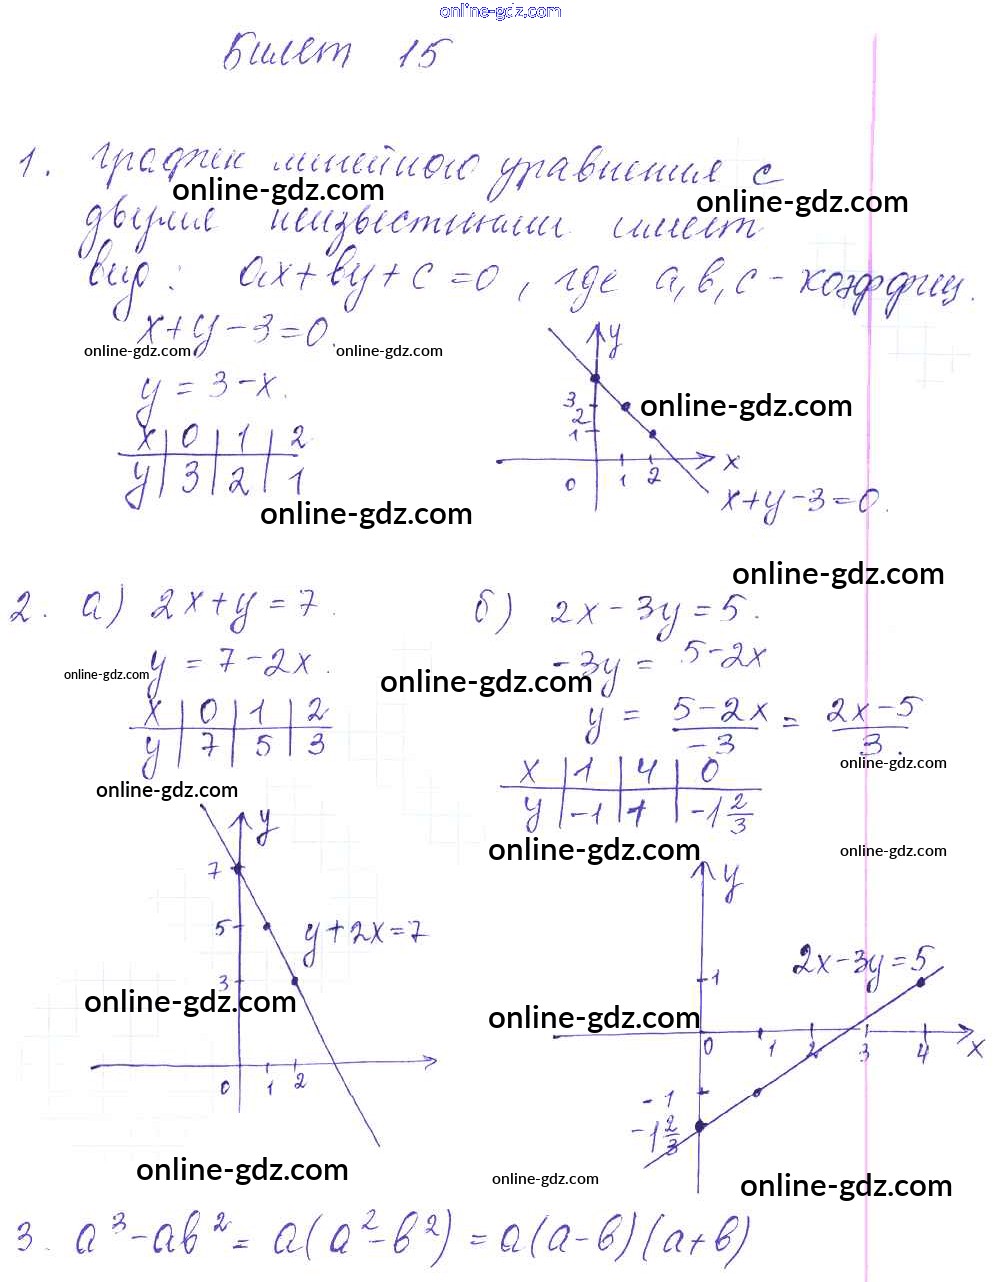 online-gdz.com
Билет 15
1. График линейного уравнения с
online-gdz.com
online-gdz.com
двумя неизвестными имеет
вид: ax+by+c=0, где a,b,c - коэффиц.
x+y-3=0.
online-gdz.com
online-gdz.com
y
y = 3-x.
3
online-gdz.com
2
1
x | 0 | 1 | 2
y | 3 | 2 | 1
0 1 2 x
x+y-3=0.
online-gdz.com
online-gdz.com
2. а) 2x+y=7.
y = 7-2x.
online-gdz.com
x | 0 | 1 | 2
y | 7 | 5 | 3
online-gdz.com
y
7
5
y+2x=7
3
online-gdz.com
0 1 2
б) 2x-3y=5.
-3y = 5-2x
online-gdz.com
y = 5-2x/-3 = 2x-5/3.
online-gdz.com
x | 1 | 4 | 0
y | -1 | 1 | -1 2/3
online-gdz.com
online-gdz.com
y
2x-3y=5
1
online-gdz.com
0 1 2 3 4 x
-1
-1 2/3
online-gdz.com
online-gdz.com
online-gdz.com
3. a³-ab² = a(a²-b²) = a(a-b)(a+b)